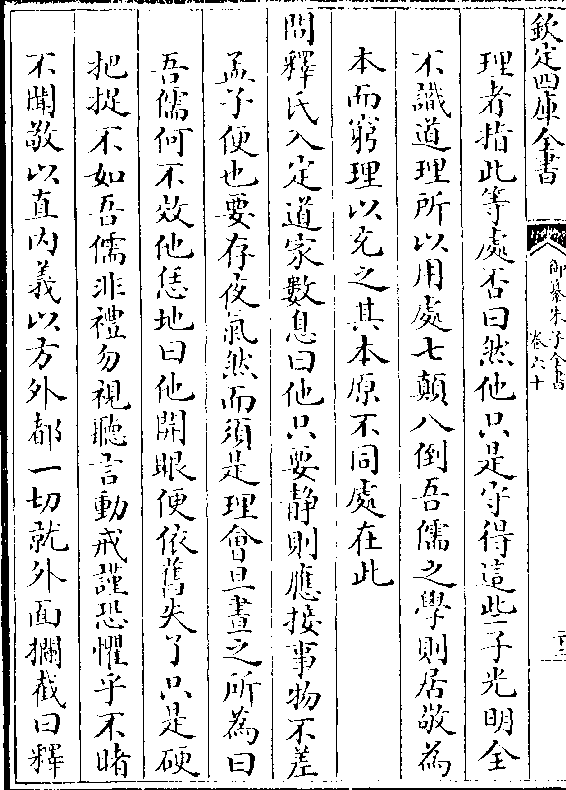 欽定四庫全書
御纂朱子全書
卷六十
理者指此等處否曰然他只是守得這些子光明全
不識道理所以用處七顛八倒吾儒之學則居敬為
本而窮理以充之其本原不同處在此
問釋氏入定道家數息曰他只要静則應接事物不差
孟子便也要存夜氣然而須是理會旦晝之所為曰
吾儒何不效他恁地曰他開眼便依舊失了只是硬
把捉不如吾儒非禮勿視聽言動戒謹恐懼乎不睹
不聞敬以直内義以方外都一切就外面攔截曰釋